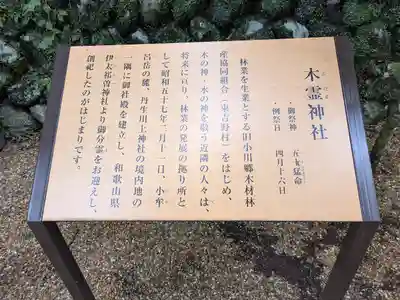 木霊神社
こだま
・御祭神　五十猛命
・例祭日　四月十六日
林業を生業とする旧小川郷木材林
産協同組合（東吉野村）をはじめ、
木の神・水の神を敬う近隣の人々は、
将来に亘り、林業の発展の拠り所と
して昭和五十七年二月十一日、小牟
呂岳の麓、丹生川上神社の境内地の
一隅に御社殿を建立し、和歌山県
伊太祁曽神社より御分霊をお迎えし、
創祀したのがはじまりです。